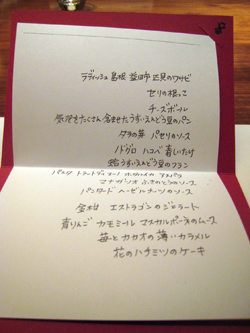 ラディッシュ 島根 益田市 匹見のワサビ
セリの根っこ
チーズボール
気泡をたくさん含ませたうすいえんどう豆のパン
タラの芽 パセリのソース
ノドグロ ハコベ 青しいたけ
蛤 うすいえんどう豆のフラン
パスタ トマト ホワイトアスパラ
ふきのとうのソース
ヘーゼルナーツのソース
金柑 エストラゴンのジェラート
青りんご カモミール マスカルポーネのムース
苺とカカオの薄いカラメル
花のハチミツのケーキ